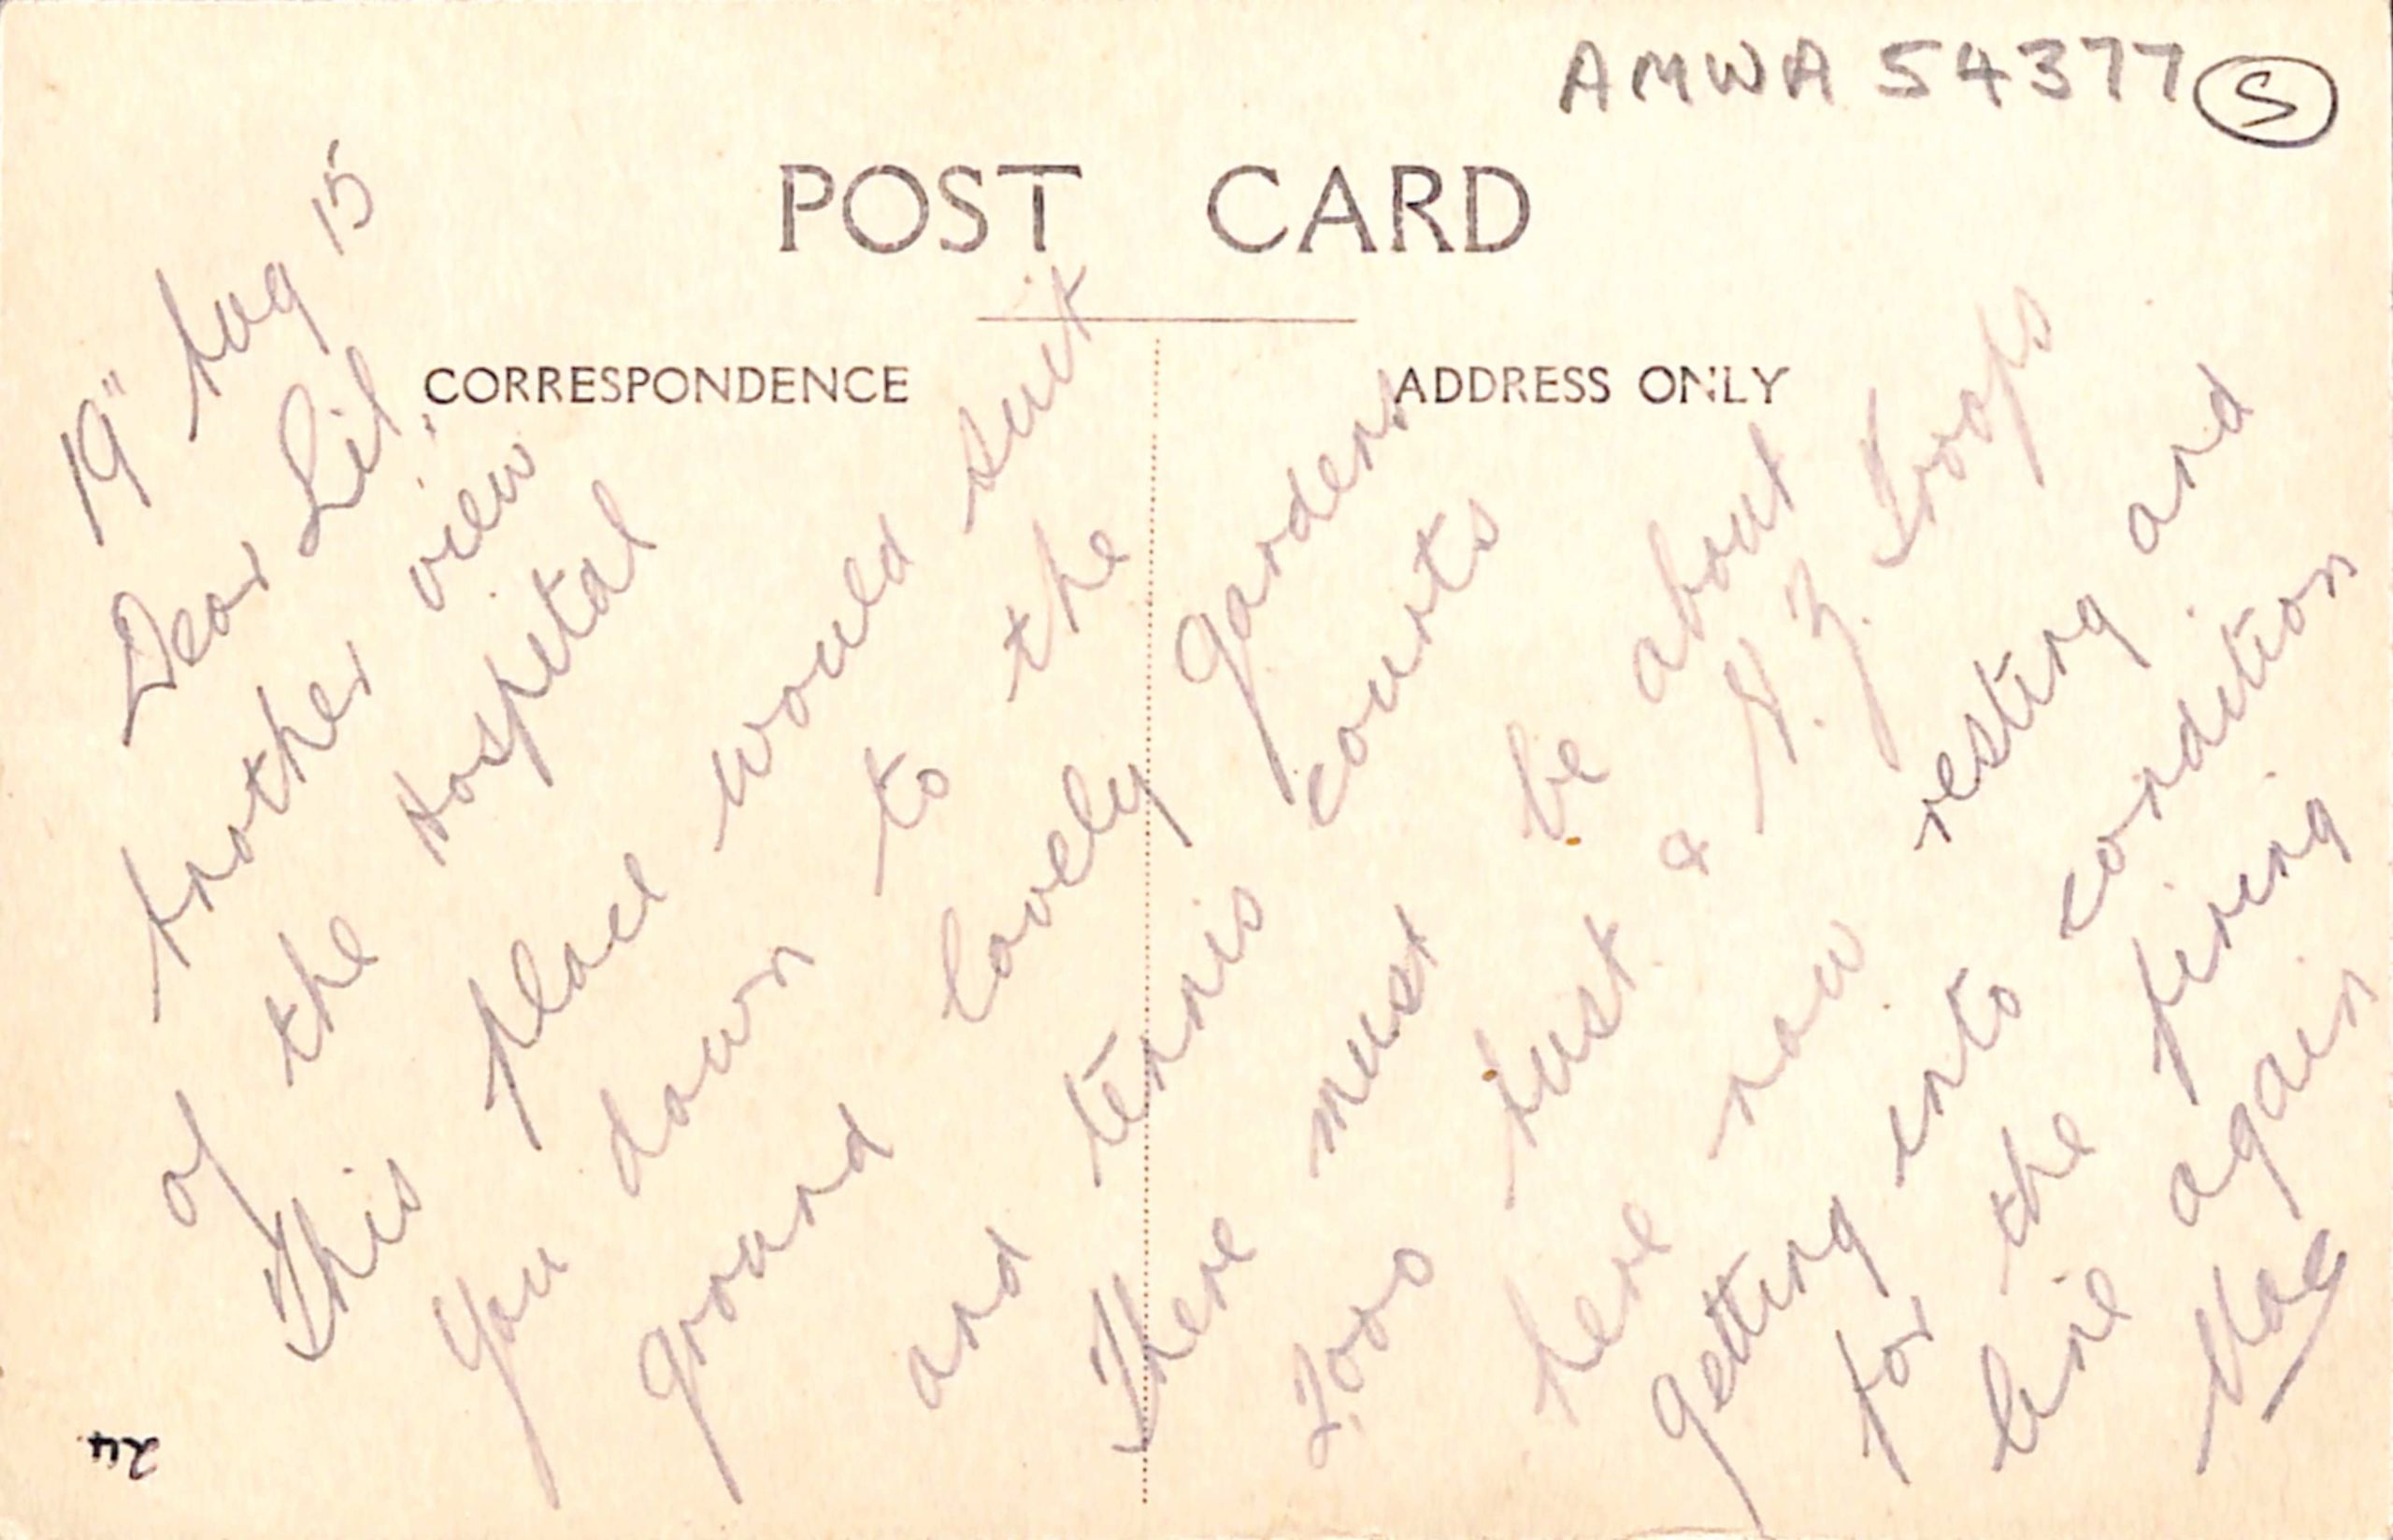 AMWA 54377 S
POST CARD
CORRESPONDENCE
ADDRESS ONLY
19" Aug 15
Dear Lil
Another view
of the Hospital
This place would suit
you down to the
ground lovely gardens
and tennis courts
There must be about
Aust & N.Z. troops
here now resting and
getting into condition
for the firing
line again
24